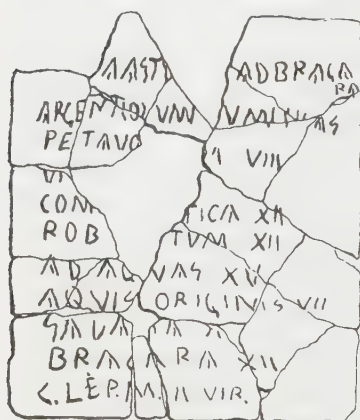 AAST AD BRACA
RA
ARGENTIO VM
PETAVO VIII
VI
COM TICA XII
ROB TVM XII
AD AQVAS XV
AQVIS ORIGINIS VII
BRACARA XII
C. LEP. M. II VIR.